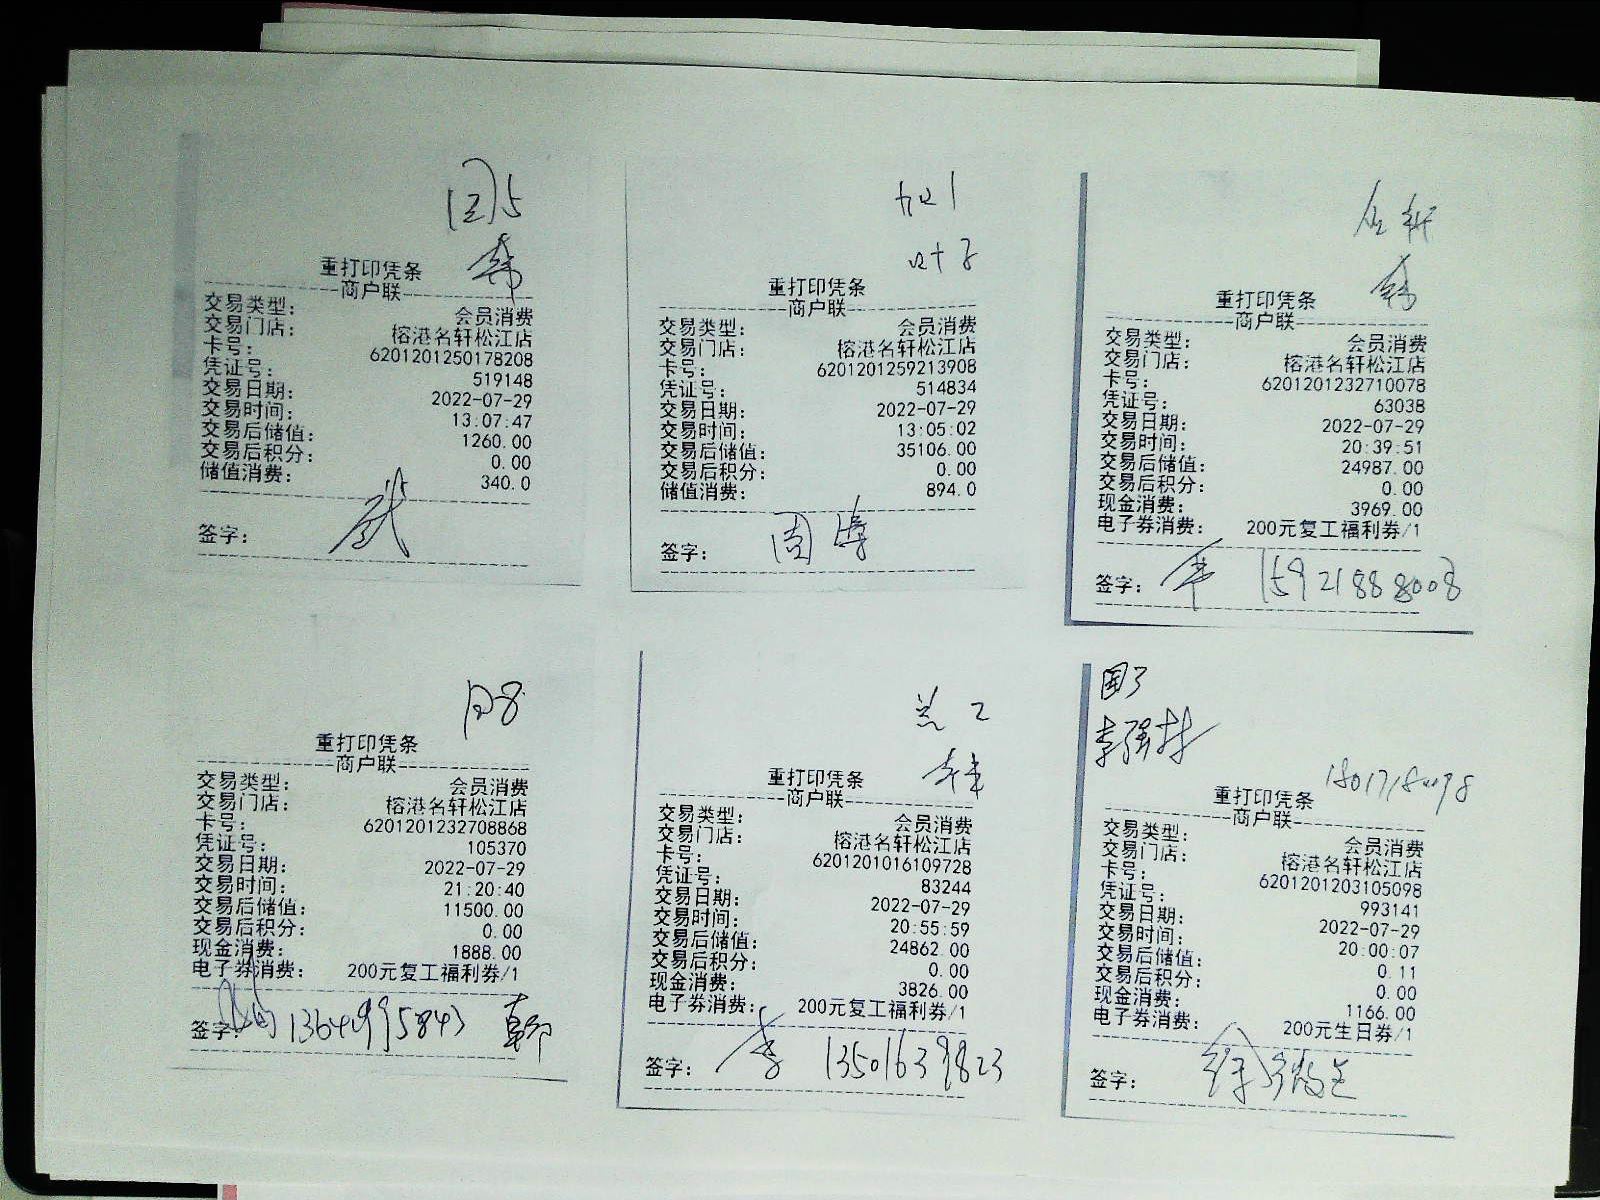 重打印凭条
商户联
交易类型： 会员消费
交易门店： 榕港名轩松江店
卡号： 6201201250178208
凭证号： 519148
交易日期： 2022-07-29
交易时间： 13:07:47
交易后储值： 1260.00
交易后积分： 0.00
储值消费： 340.0
签字：
叶子
重打印凭条
商户联
交易类型： 会员消费
交易门店： 榕港名轩松江店
卡号： 6201201259213908
凭证号： 514834
交易日期： 2022-07-29
交易时间： 13:05:02
交易后储值： 35106.00
交易后积分： 0.00
储值消费： 894.0
签字： 周
重打印凭条
商户联
交易类型： 会员消费
交易门店： 榕港名轩松江店
卡号： 6201201232710078
凭证号： 63038
交易日期： 2022-07-29
交易时间： 20:39:51
交易后储值： 24987.00
交易后积分： 0.00
现金消费： 3969.00
电子券消费： 200元复工福利券/1
签字： 15921888008
重打印凭条
商户联
交易类型： 会员消费
交易门店： 榕港名轩松江店
卡号： 6201201232708868
凭证号： 105370
交易日期： 2022-07-29
交易时间： 21:20:40
交易后储值： 11500.00
交易后积分： 0.00
现金消费： 1888.00
电子券消费： 200元复工福利券/1
签字：
重打印凭条
商户联
交易类型： 会员消费
交易门店： 榕港名轩松江店
卡号： 6201201016109728
凭证号： 83244
交易日期： 2022-07-29
交易时间： 20:55:59
交易后储值： 24862.00
交易后积分： 0.00
现金消费： 3826.00
电子券消费： 200元复工福利券/1
签字： 李 13501639823
国3
李强林
重打印凭条
商户联
交易类型： 会员消费
交易门店： 榕港名轩松江店
卡号： 6201201203105098
凭证号： 993141
交易日期： 2022-07-29
交易时间： 20:00:07
交易后储值： 0.11
交易后积分： 0.00
现金消费： 1166.00
电子券消费： 200元生日券/1
签字：